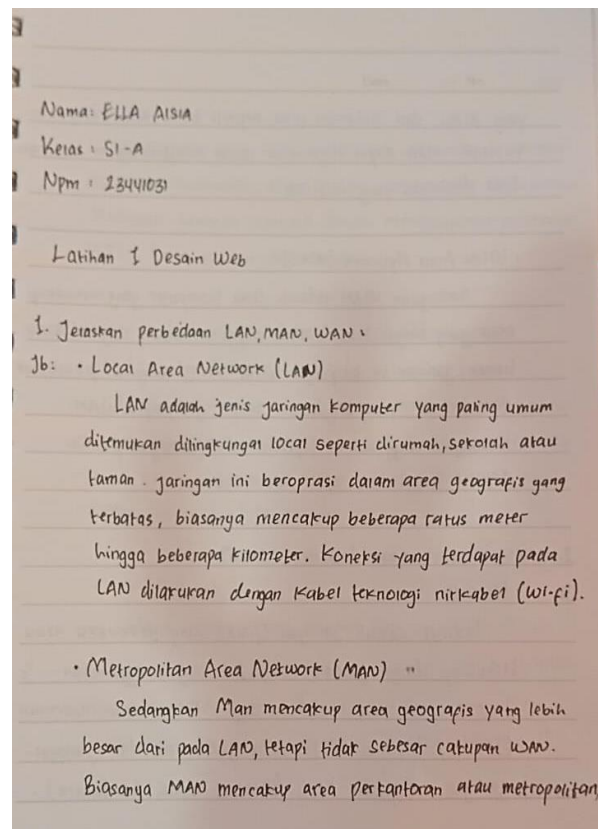 Nama: ELLA AISIA
Kelas: SI-A
Npm: 23441031
Latihan 1 Desain Web
1. Jelaskan perbedaan LAN, MAN, WAN.
Jb: • Local Area Network (LAN)
LAN adalah jenis jaringan komputer yang paling umum
ditemukan dilingkungan local seperti dirumah, sekolah atau
taman. jaringan ini beroprasi dalam area geografis yang
terbatas, biasanya mencakup beberapa ratus meter
hingga beberapa kilometer. Koneksi yang terdapat pada
LAN dilakukan dengan kabel teknologi nirkabel (Wi-fi).
• Metropolitan Area Network (MAN)
Sedangkan Man mencakup area geografis yang lebih
besar dari pada LAN, tetapi tidak sebesar cakupan WAN.
Biasanya MAN mencakup area perkantoran atau metropolitan,